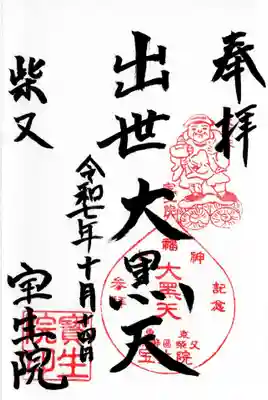 奉拝
出世大黒天
令和七年十月十四日
柴又
宝生院
福神
記念
大黒天
寶生
院印